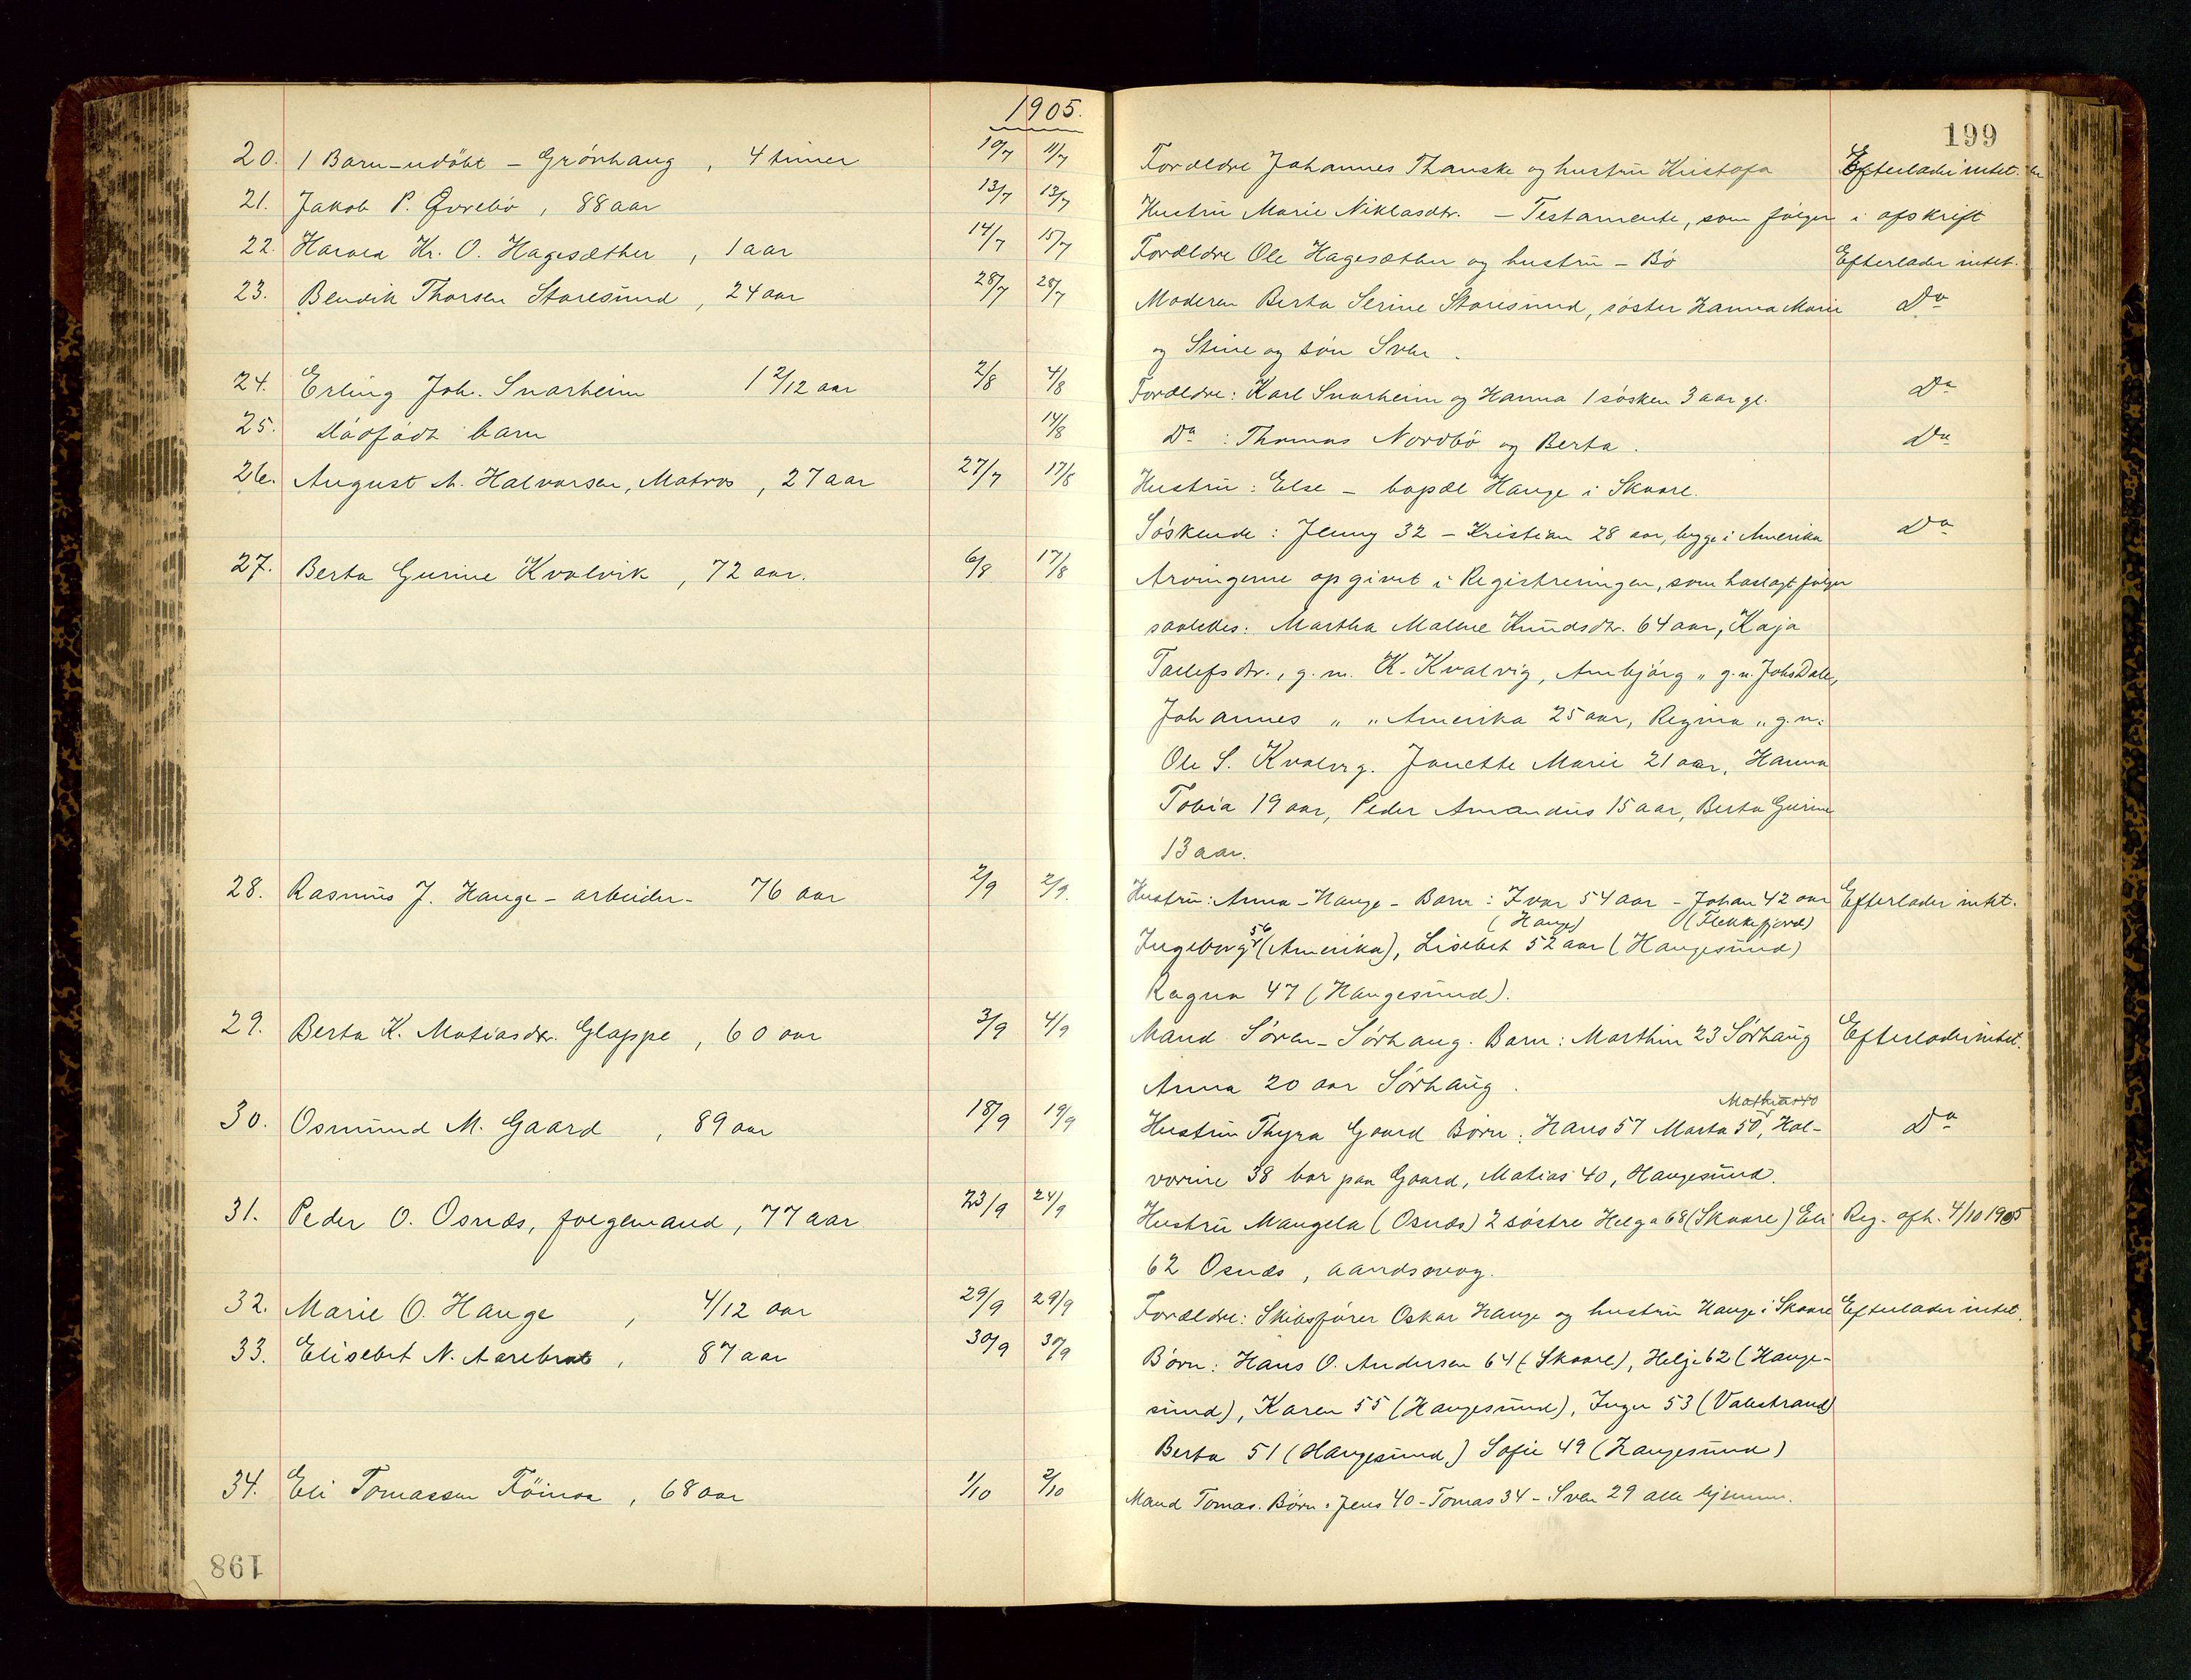 1905.
199
20. 1 Barn - udöbt - Grönhaug, 4 timer 10/7 11/7 Forældre Johannes Thauske og hustru Kristofa Efterlader intet.
21. Jakob P. Øvrebö, 88 aar 13/7 13/7 Hustru Marie Niklasdtr. - Testamente, som følger i afskrift
22. Harald Kr. O. Hagesæther, 1 aar 14/7 15/7 Forældre Ole Hagesæther og hustru - Bö Efterlader intet.
23. Bendik Thorsen Storesund, 24 aar 28/7 28/7 Moderen Berta Serine Storesund, söster Hanna Marie Do
og Stine og sön Sven.
24. Erling Joh. Snarheim 1 2/12 aar 2/8 4/8 Forældre: Karl Snarheim og Hanna 1 sösken 3 aar gl. Do
25. Dödfödt barn 14/8 Do : Thomas Nordbö og Berta. Do
26. August M. Halvorsen, Matros, 27 aar 27/7 17/8 Hustru: Else - bopæl Hauge i Skaare.
Söskende: Jenny 32 - Kristian 28 aar, begge i Amerika Do
27. Berta Gurine Kvalvik, 72 aar. 6/8 17/8 Arvingerne opgivet i Registreringen, som haslagt følger
saaledes: Martha Malene Knudsdtr. 64 aar, Kaja
Tollefsdtr., g. m. K. Kvalvig, Anbjörg " g. m. Johs Dale,
Johannes " " Amerika 25 aar, Regina " g. m.
Ole S. Kvalvig. Janette Marie 21 aar, Hanna
Tobia 19 aar, Peder Amandus 15 aar, Berta Gurine
13 aar.
28. Rasmus J. Hauge - arbeider - 76 aar 2/9 2/9. Hustru: Anna - Hauge - Barn: Ivar 54 aar - Johan 42 aar Efterlader intet.
(Hauge) (Flekkefjord)
Ingeborg 56 (Amerika), Lisebet 52 aar (Haugesund)
Ragna 47 (Haugesund).
29. Berta K. Matiasdtr. Glappe, 60 aar 3/9 4/9 Mand Sören - Sörhaug. Barn: Marthin 23 Sörhaug Efterlader intet.
Anna 20 aar Sörhaug.
Mathias 40
30. Osmund M. Gaard, 89 aar 18/9 19/9 Hustru Thyra Gaard Börn: Hans 57 Marta 50, Hal- Do
vorine 38 bor paa Gaard, Matias 40, Haugesund.
31. Peder O. Osnæs, folgemand, 77 aar 23/9 24/9 Hustru Mangela (Osnæs) 2 söstre Helga 68 (Skaare) Eli Reg. afh. 4/10 1905
62 Osnæs, aandssvag.
32. Marie O. Hauge, 4/12 aar 29/9 29/9 Forældre: Skibsfører Oskar Hauge og hustru Hauge i Skaare Efterlader intet.
33. Elisebet N. Aarebrot, 87 aar 30/9 30/9 Börn: Hans O. Andersen 64 (Skaare), Helje 62 (Hauge-
sund), Karen 55 (Haugesund), Inger 53 (Valestrand)
Berta 51 (Haugesund) Sofie 49 (Haugesund)
34. Eli Tomassen Föinaa, 68 aar 1/10 2/10 Mand Tomas. Börn: Jens 40 - Tomas 34 - Sven 29 alle hjemme.
198